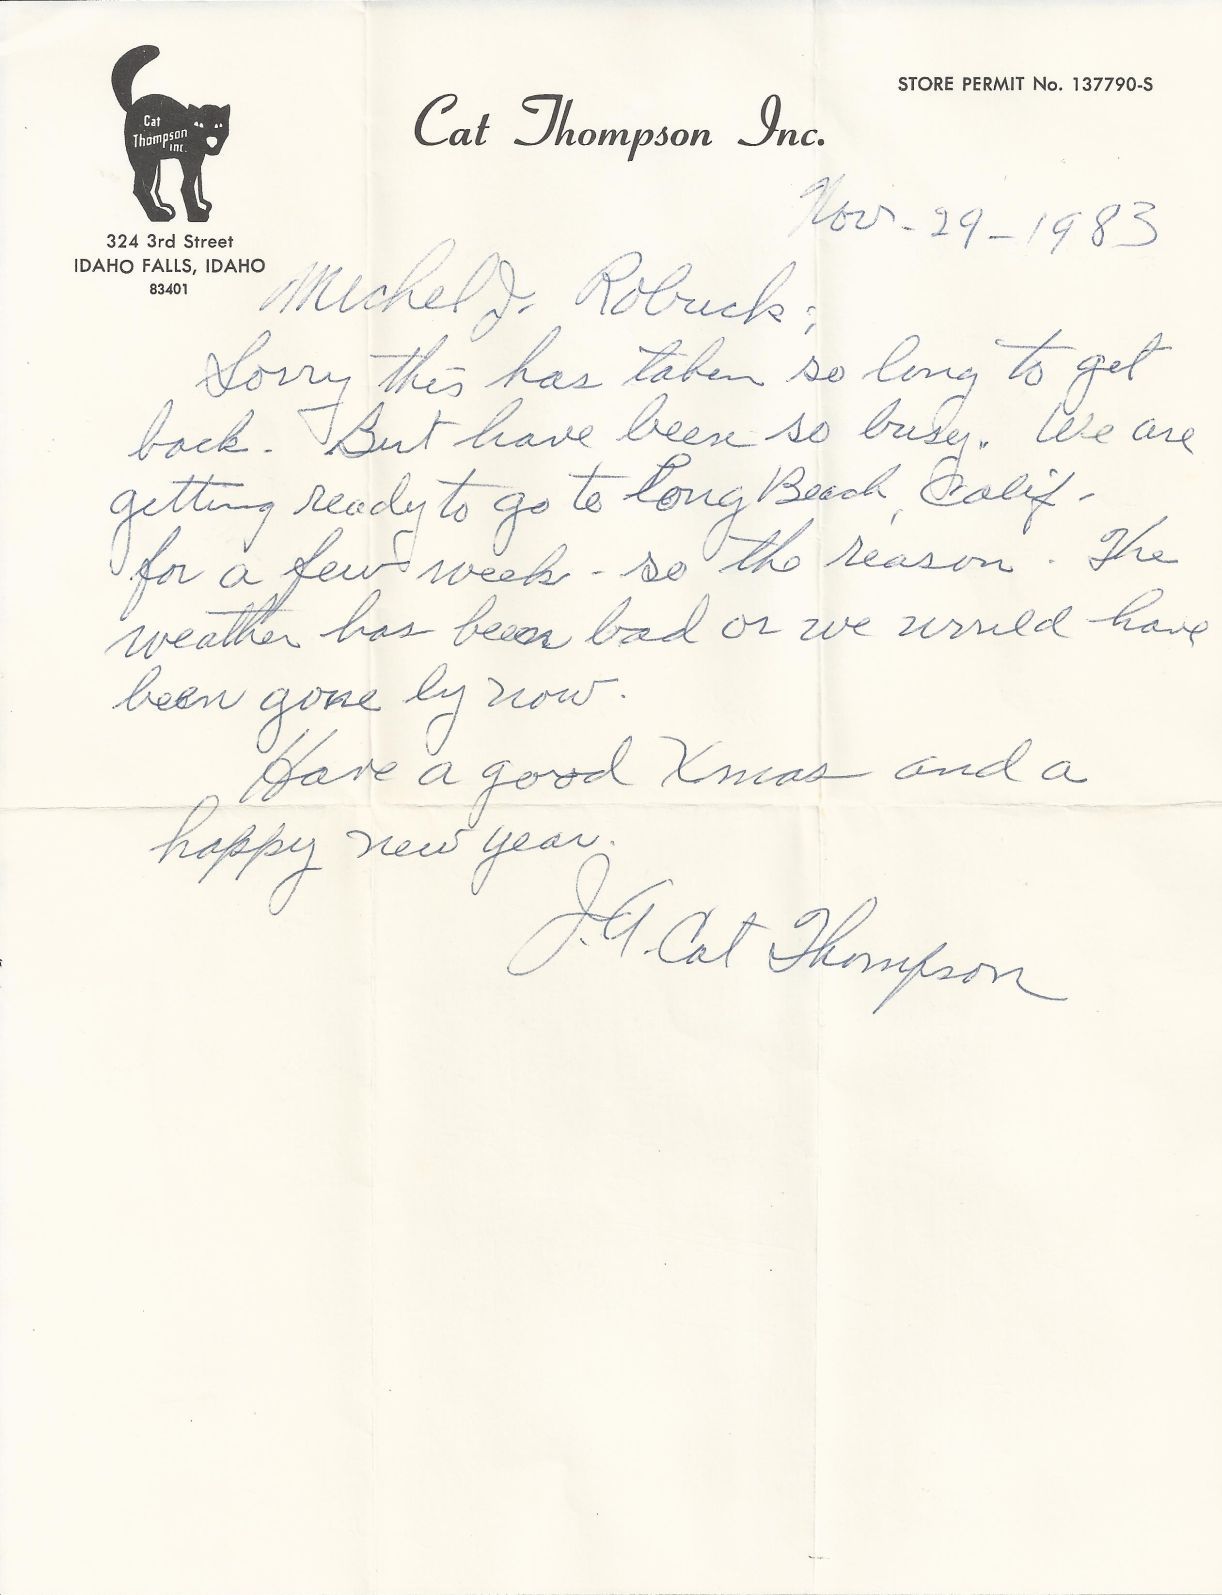 STORE PERMIT No. 137790-S
Cat
Thompson
inc.
Cat Thompson Inc.
324 3rd Street
IDAHO FALLS, IDAHO
83401
Nov - 29 - 1983
Michel J. Robuck;
Sorry this has taken so long to get
back. But have been so busy. We are
getting ready to go to Long Beach, Calif -
for a few week - so the reason. The
weather has been bad or we would have
been gone by now.
Have a good Xmas and a
happy new year.
J.A. Cat Thompson